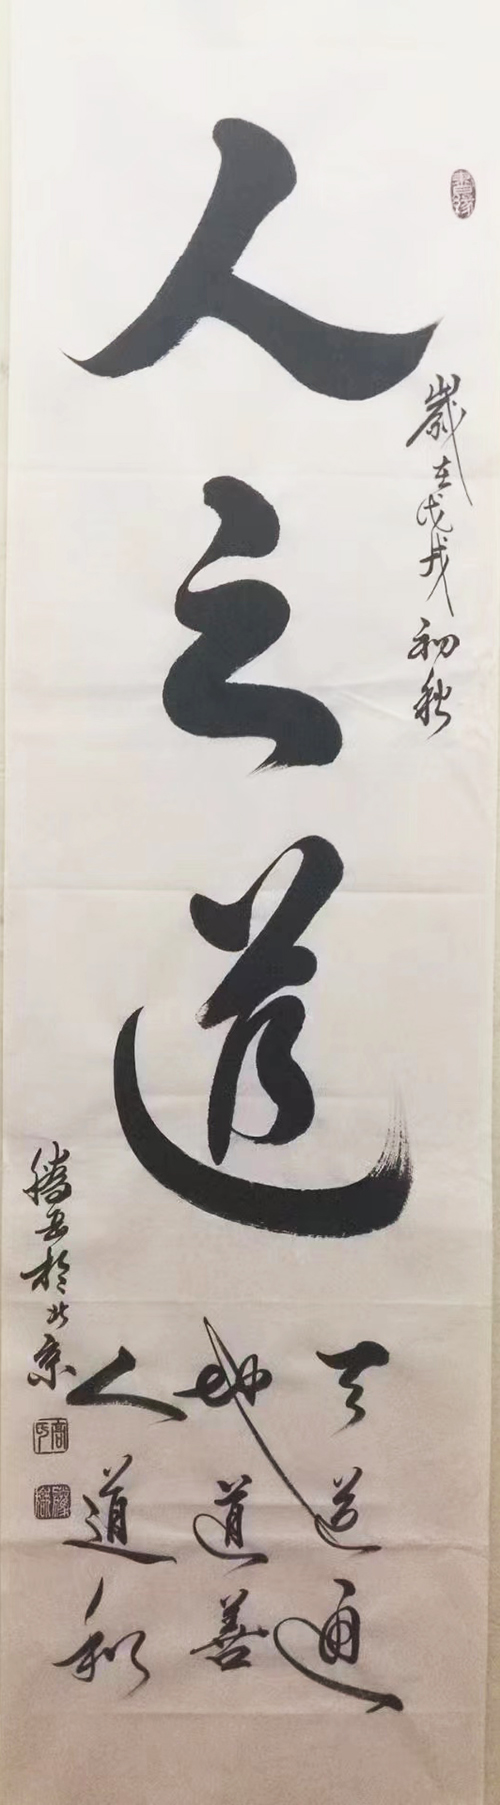 人之道
歲在戊戌初秋
天道通
地道善
人道和
騰岳於北京